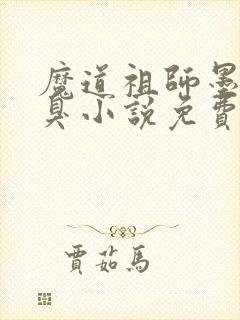 魔道祖師墨
臭小說免費
賈茹馬